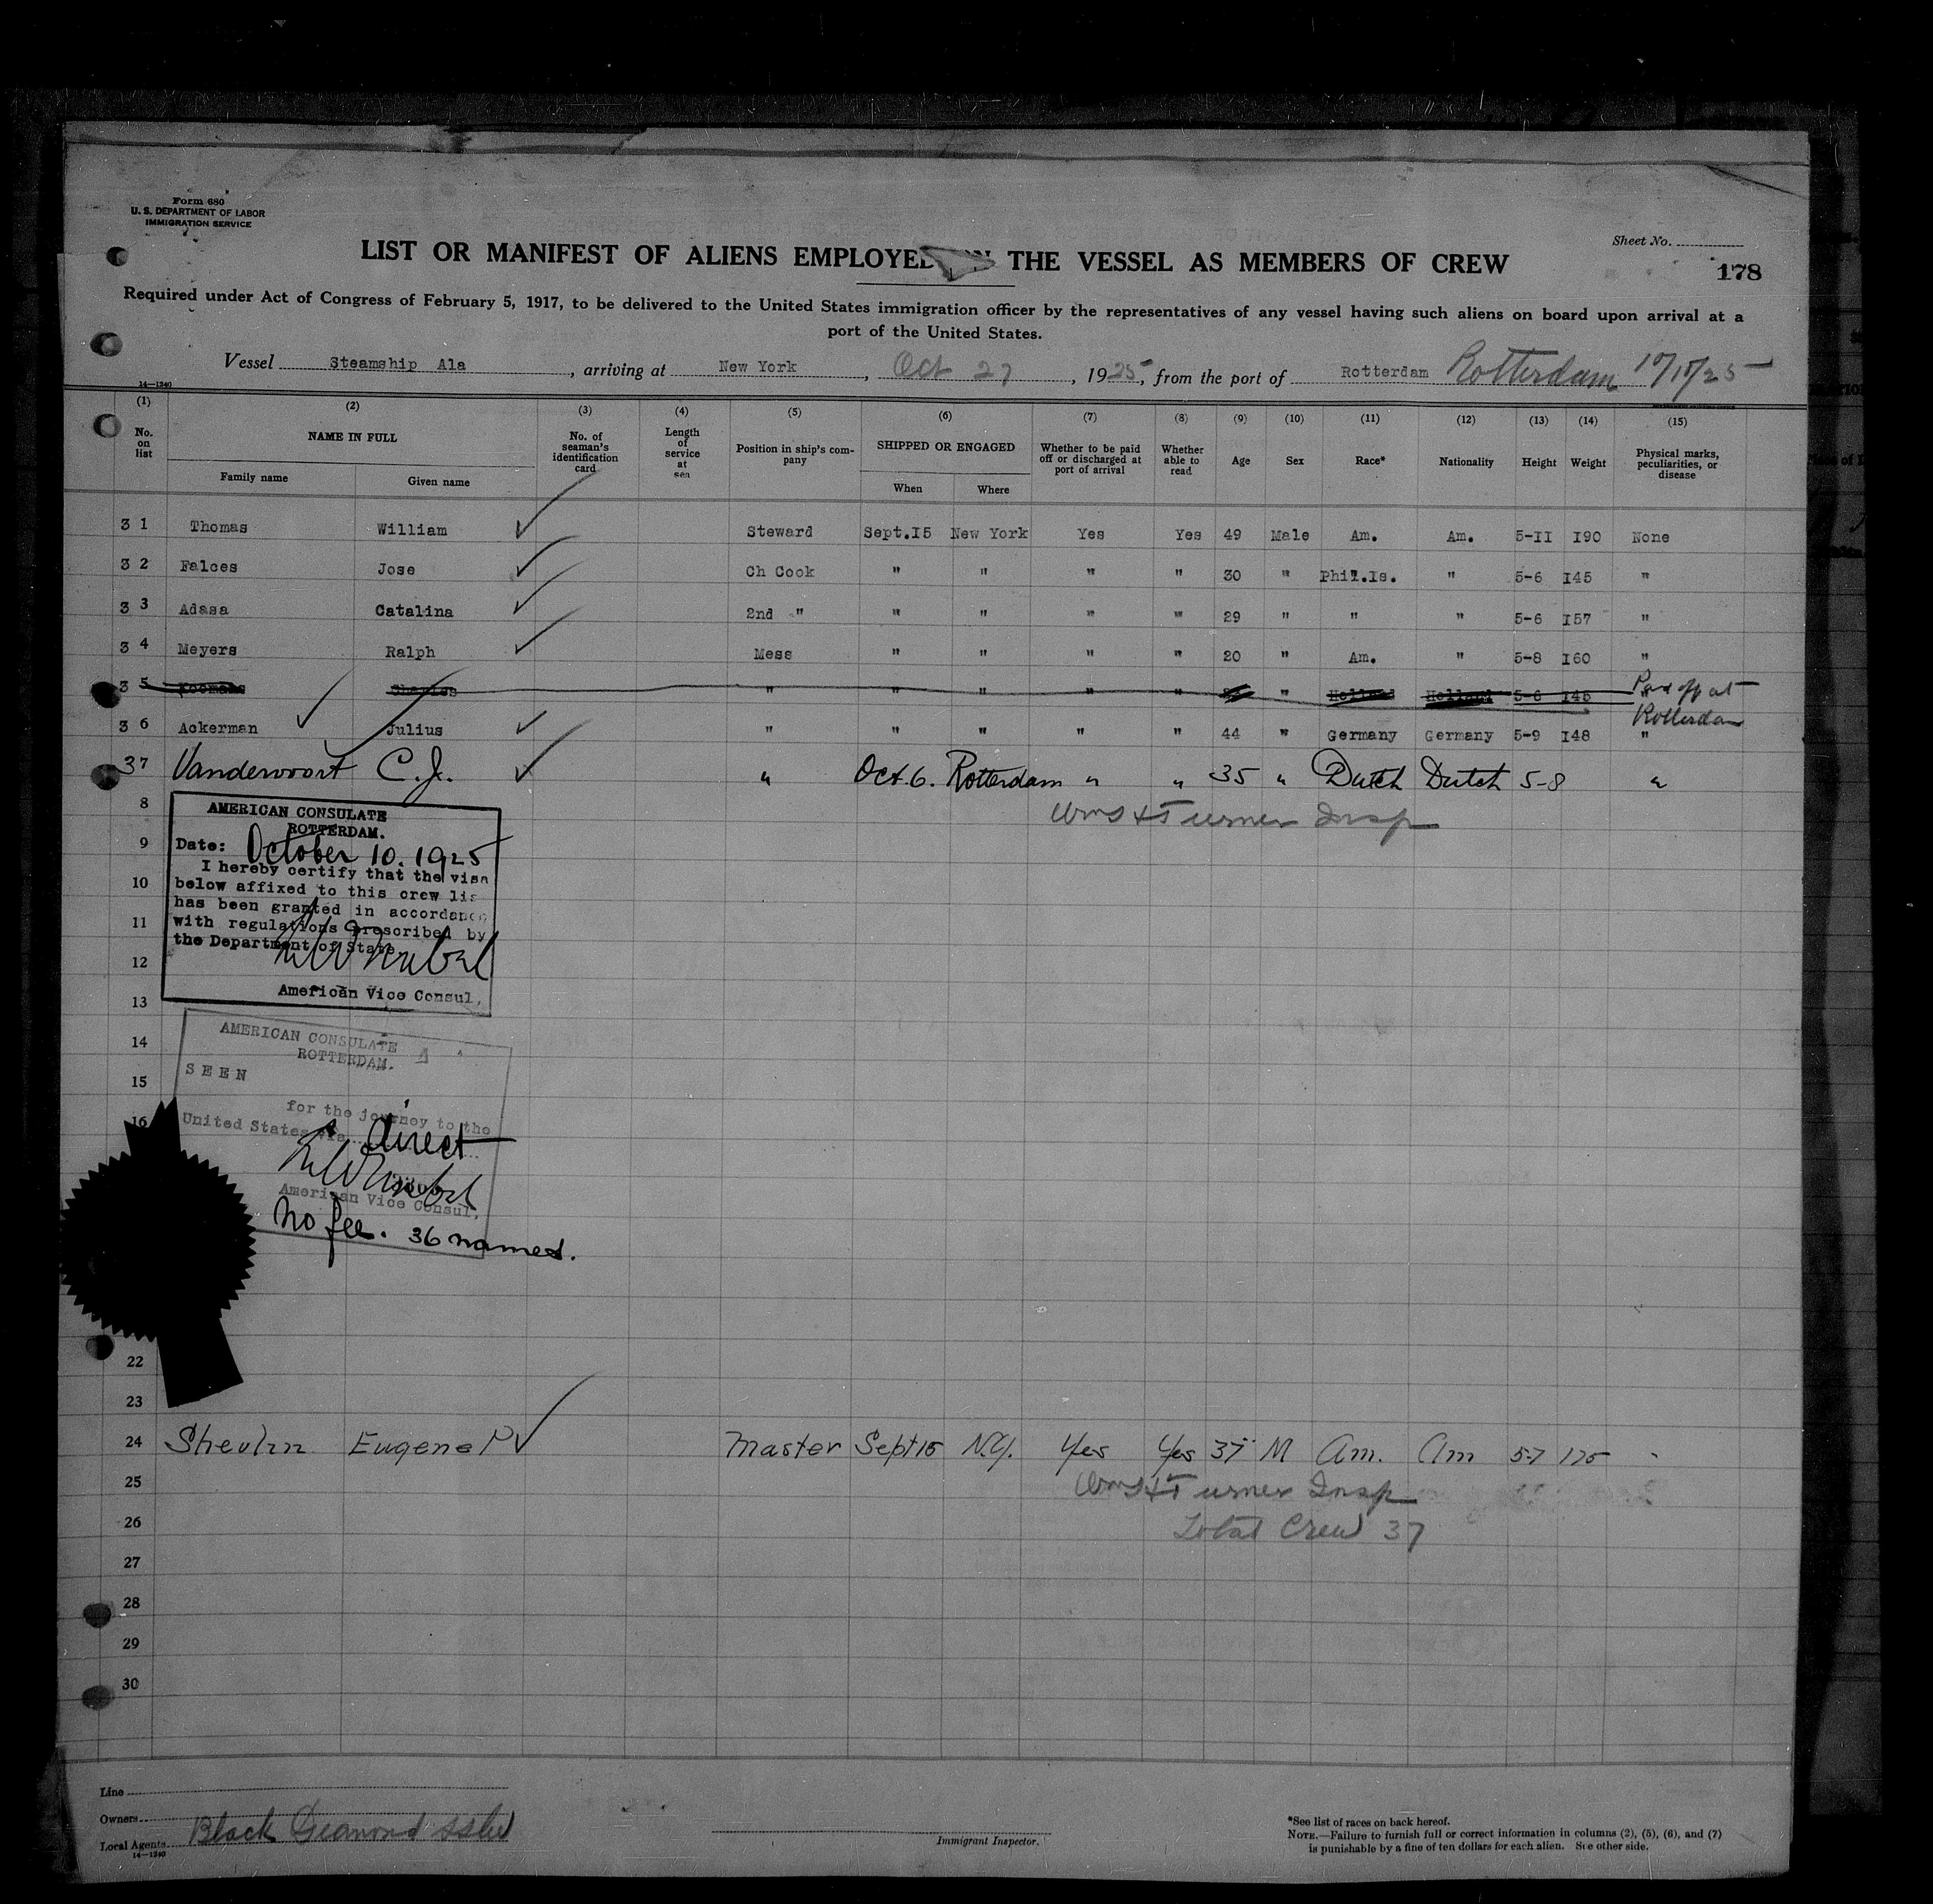 Form 680
U. S. DEPARTMENT OF LABOR
IMMIGRATION SERVICE
Sheet No.
LIST OR MANIFEST OF ALIENS EMPLOYED ON THE VESSEL AS MEMBERS OF CREW
178
Required under Act of Congress of February 5, 1917, to be delivered to the United States immigration officer by the representatives of any vessel having such aliens on board upon arrival at a
port of the United States.
Vessel Steamship Ala, arriving at New York, Oct 27, 1925, from the port of Rotterdam Rotterdam 10/10/25
14—1240
(1) (2) (3) (4) (5) (6) (7) (8) (9) (10) (11) (12) (13) (14) (15)
No. on list
NAME IN FULL
Family name
Given name
No. of seaman's identification card
Length of service at sea
Position in ship's company
SHIPPED OR ENGAGED
When
Where
Whether to be paid off or discharged at port of arrival
Whether able to read
Age
Sex
Race*
Nationality
Height
Weight
Physical marks, peculiarities, or disease
3 1 Thomas William Steward Sept.15 New York Yes Yes 49 Male Am. Am. 5-11 190 None
3 2 Falces Jose Ch Cook " " " " 30 " Phil.Is. " 5-6 145 "
3 3 Adasa Catalina 2nd " " " " " 29 " " " 5-6 157 "
3 4 Meyers Ralph Mess " " " " 20 " Am. " 5-8 160 "
3 5 Charles " " " " " " Holland Holland 5-6 145 Paid off at
Rotterdam
3 6 Ackerman Julius " " " " " 44 " Germany Germany 5-9 148 "
37 Vandervoort C.J. " Oct.6. Rotterdam " " 35 " Dutch Dutch 5-8 "
8
Turner Insp
AMERICAN CONSULATE
ROTTERDAM.
9
Date: October 10. 1925
I hereby certify that the visa
10
below affixed to this crew lis
has been granted in accordance
11
with regulations prescribed by
the Department of State.
12
American Vice Consul,
13
14
AMERICAN CONSULATE
ROTTERDAM.
15
SEEN
for the journey to the
16
United States via direct
American Vice Consul,
No fee. 36 names.
22
23
24 Shevlin Eugene P Master Sept 15 N.Y. Yes Yes 37 M Am. Am 5-7 175 "
25
Turner Insp
26
Total Crew 37
27
28
29
30
Line
Owners
Local Agents Black Diamond
14—1240
Immigrant Inspector.
*See list of races on back hereof.
NOTE.—Failure to furnish full or correct information in columns (2), (5), (6), and (7)
is punishable by a fine of ten dollars for each alien. See other side.